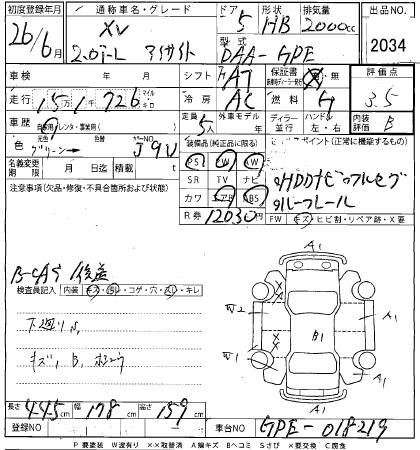 初度登録年月 通称車名・グレード ドア 形状 排気量 出品NO
26/6月 XV 5 HB 2000cc 2034
2.0i-L アイサイト 型式 DAA-GPE
車検 年 月 シフト AT 保証書 有・無 評価点
走行 15万1千726 マイル キロ 冷房 AC 燃料 G 3.5
車歴 自家用・レンタ・事業用( ) 定員 5人 外車モデル年 ディーラー・並行 ハンドル 左・右 内装 B
色 元色 グリーン→ カラーNO J9U 装備品(純正品に限る) セールスポイント(正常に機能するもの)
PS PW SW
名義変更期限 月 日迄 積載 t SR TV ナビ
注意事項(欠品・修復・不具合箇所および状態) カワ エアB ABS
R券 12030円
HDDナビ フルセグ
ルーフレール
FW キズ・ヒビ割・リペア跡・X要
B-CAS 後送
検査員記入 内装・キズ・汚レ・コゲ・穴・スレ・キレ
下廻りS
キズ、B、ホシュウ
A1
W2
A1
B1
W1
A1
A1
長さ 445cm 幅 178cm 高さ 159cm
登録NO 車台NO GPE-018219
P要塗装 W波有り ××取替済 A線キズ Bヘコミ Sさび ×要交換 C腐食